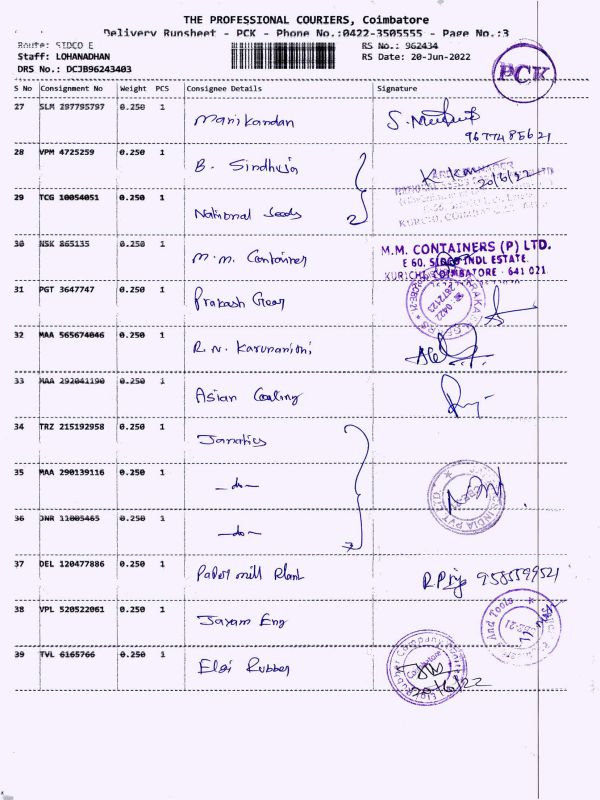 THE PROFESSIONAL COURIERS, Coimbatore
Delivery Runsheet - PCK - Phone No.:0422-3505555 - Page No.:3
Route: SIDCO E
RS No.: 962434
Staff: LOHANADHAN
RS Date: 20-Jun-2022
DRS No.: DCJB96243403
PCK
S No Consignment No Weight PCS Consignee Details Signature
27 SLM 297795797 0.250 1 Manikandan
28 VPM 4725259 0.250 1 B. Sindhuja
20/6/22
29 TCG 10054051 0.250 1 National Seeds 2
30 NSK 865135 0.250 1 M.M. Container
M.M. CONTAINERS (P) LTD.
E 60, SIDCO INDL ESTATE,
KURICHI, COIMBATORE - 641 021
31 PGT 3647747 0.250 1 Prakash Gear
32 MAA 565674046 0.250 1 R.N. Karunanithi
33 MAA 292041190 0.250 1 Asian Coating
34 TRZ 215192958 0.250 1 Janatics
35 MAA 290139116 0.250 1 —do—
36 JNR 11005465 0.250 1 —do—
37 DEL 120477886 0.250 1 Paper mill Plant 9585599521
38 VPL 520522061 0.250 1 Jayam Eng
And Tools
39 TVL 6165766 0.250 1 Elgi Rubber
20/6/22